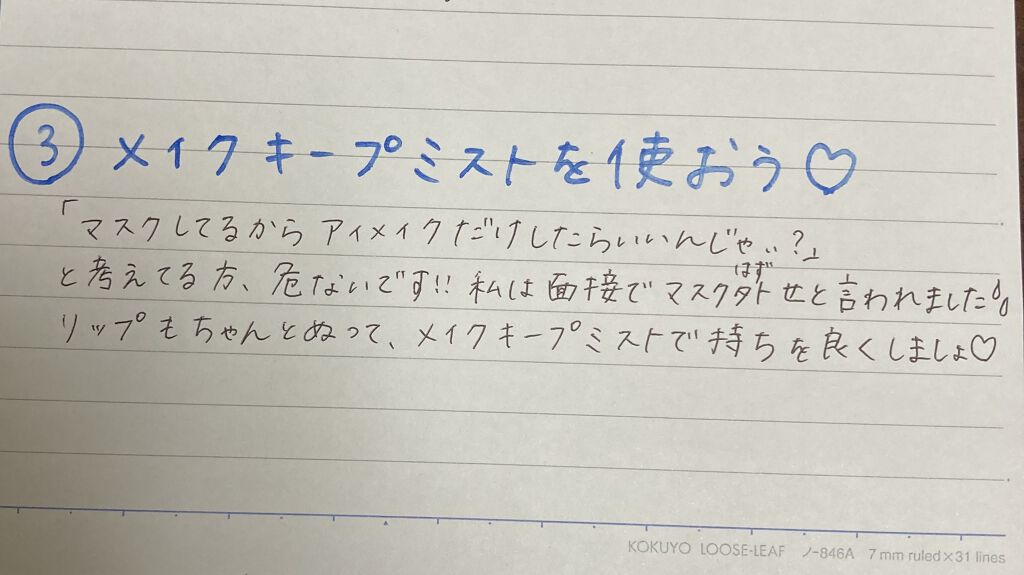 ③ メイクキープミストを使おう♡
「マスクしてるからアイメイクだけしたらいいんじゃ…?」
と考えてる方、危ないです!! 私は面接でマスク外(はず)せと言われました
リップもちゃんとぬって、メイクキープミストで持ちを良くしましょ♡
KOKUYO LOOSE-LEAF ノ-846A 7 mm ruled×31 lines